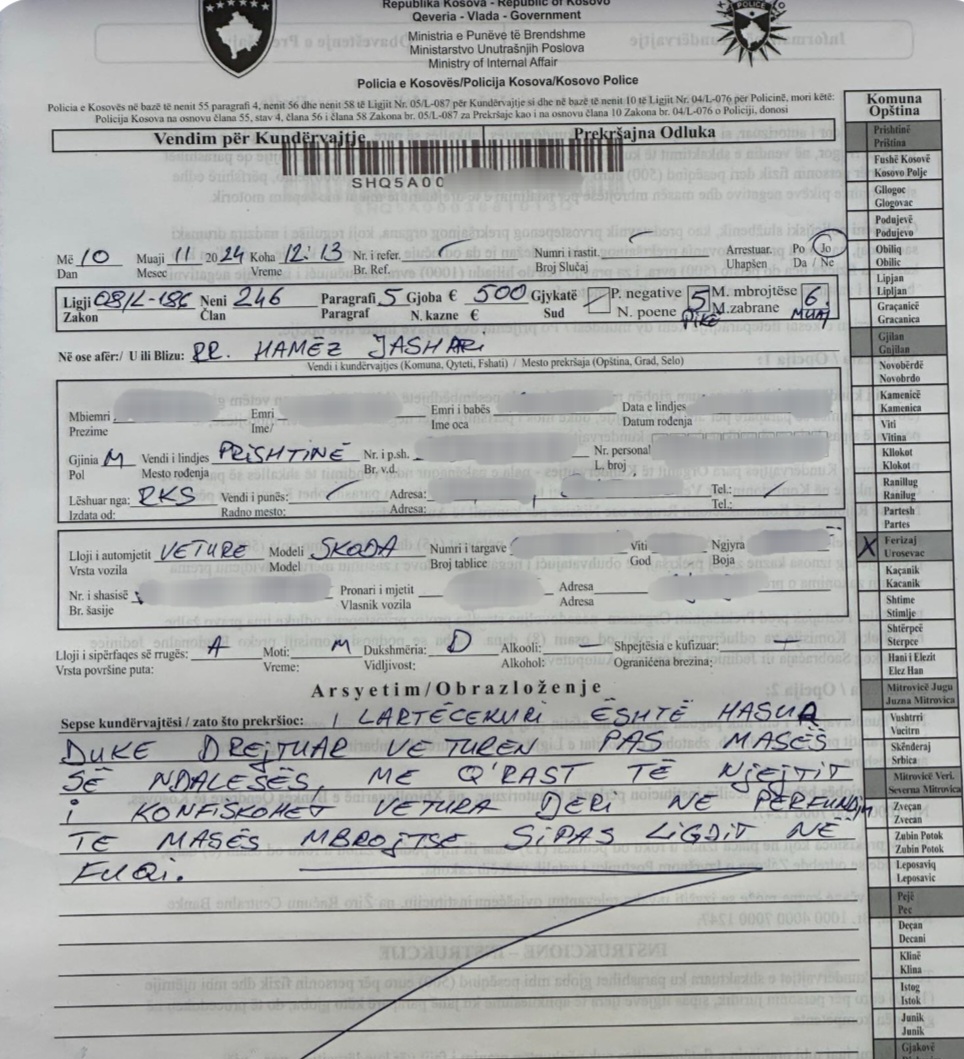 Republika Kosova - Republic of Kosovo
Qeveria - Vlada - Government
Ministria e Punëvë të Brendshme
Ministarstvo Unutrašnjih Poslova
Ministry of Internal Affair
Policia e Kosovës/Policija Kosova/Kosovo Police
Policia e Kosovës në bazë të nenit 55 paragrafi 4, nenit 56 dhe nenit 58 të Ligjit Nr. 05/L-087 për Kundërvajtje si dhe në bazë të nenit 10 të Ligjit Nr. 04/L-076 për Policinë, mori këtë:
Policija Kosova na osnovu člana 55, stav 4, člana 56 i člana 58 Zakona br. 05/L-087 za Prekršaje kao i na osnovu člana 10 Zakona br. 04/L-076 o Policiji, donosi
Vendim për Kundërvajtje Prekršajna Odluka
SHQ5A00
Më 10 Muaji 11 2024 Koha 12:13 Nr. i refer. Numri i rastit. Arrestuar. Po Jo
Dan Mesec Vreme Br. Ref. Broj Slučaj Uhapšen Da / Ne
Ligji 08/L-186 Neni 246 Paragrafi 5 Gjoba € 500 Gjykatë P. negative 5 M. mbrojtëse 6
Zakon Član Paragraf N. kazne € Sud N. poene PIKË M.zabrane MUAJ
Në ose afër:/ U ili Blizu: RR. HAMËZ JASHARI
Vendi i kundërvajtjes (Komuna, Qyteti, Fshati) / Mesto prekršaja (Opština, Grad, Selo)
Mbiemri Emri Emri i babës Data e lindjes
Prezime Ime/ Ime oca Datum rođenja
Gjinia M Vendi i lindjes PRISHTINË Nr. i p.sh. Nr. personal
Pol Mesto rođenja Br. v.d. L. broj
Lëshuar nga: RKS Vendi i punës: Adresa: Tel.:
Izdata od: Radno mesto: Adresa: Tel.:
Lloji i automjetit VETURE Modeli SKODA Numri i targave Viti Ngjyra
Vrsta vozila Model Broj tablice God Boja
Nr. i shasisë Pronari i mjetit Adresa
Br. šasije Vlasnik vozila Adresa
Lloji i sipërfaqes së rrugës: A Moti: M Dukshmëria: D Alkooli: — Shpejtësia e kufizuar:
Vrsta površine puta: Vreme: Vidljivost: Alkohol: Ograničena brezina:
Arsyetim/Obrazloženje
Sepse kundërvajtësi / zato što prekršioc: I LARTËCEKURI ËSHTË HASUR
DUKE DREJTUAR VETUREN PAS MASËS
SË NDALESËS, ME Q'RAST TË NJEJTIT
I KONFISKOHET VETURA DERI NË PËRFUNDIM
TE MASËS MBROJTSE SIPAS LIGJIT NË
FUQI.
Komuna
Opština
Prishtinë
Priština
Fushë Kosovë
Kosovo Polje
Gllogoc
Glogovac
Podujevë
Podujevo
Obiliq
Obilic
Lipjan
Lipljan
Graçanicë
Gracanica
Gjilan
Gnjilan
Novobërdë
Novobrdo
Kamenicë
Kamenica
Viti
Vitina
Kllokot
Klokot
Ranillug
Ranilug
Partesh
Partes
X Ferizaj
Urosevac
Kaçanik
Kacanik
Shtime
Stimlje
Shtërpcë
Sterpce
Hani i Elezit
Elez Han
Mitrovicë Jugu
Juzna Mitrovica
Vushtrri
Vucitrn
Skënderaj
Srbica
Mitrovicë Veri.
Severna Mitrovica
Zveçan
Zvecan
Zubin Potok
Zubin Potok
Leposaviq
Leposavic
Pejë
Pec
Deçan
Decani
Klinë
Klina
Istog
Istok
Junik
Junik
Gjakovë